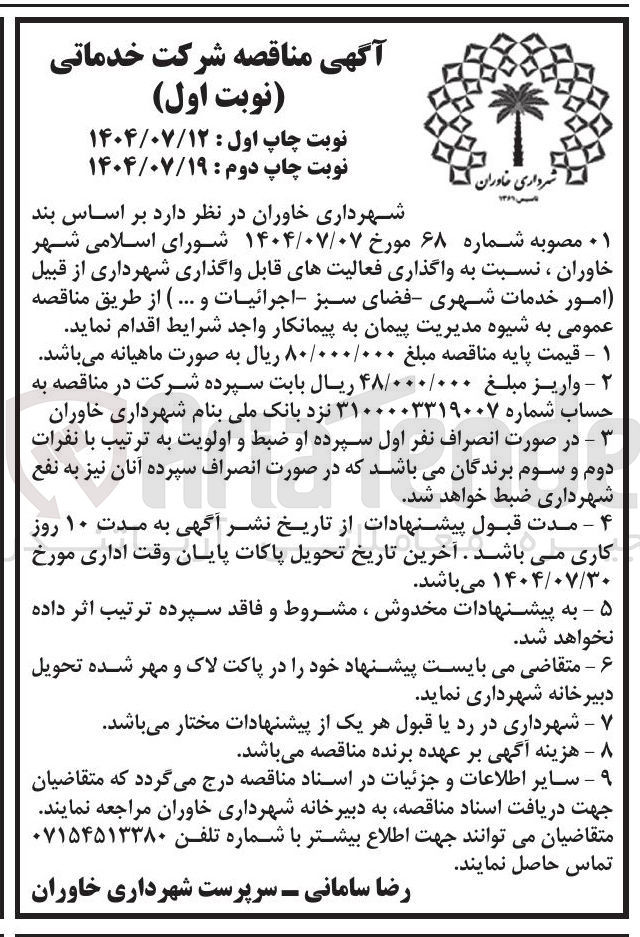 آگهی مناقصه شرکت خدماتی
(نوبت اول)
نوبت چاپ اول : ۱۴۰۴/۰۷/۱۲
نوبت چاپ دوم : ۱۴۰۴/۰۷/۱۹
شهرداری خاوران
تاسیس ۱۳۶۱
شهرداری خاوران در نظر دارد بر اساس بند
۰۱ مصوبه شماره ۶۸ مورخ ۱۴۰۴/۰۷/۰۷ شورای اسلامی شهر
خاوران ، نسبت به واگذاری فعالیت های قابل واگذاری شهرداری از قبیل
(امور خدمات شهری -فضای سبز -اجرائیات و ... ) از طریق مناقصه
عمومی به شیوه مدیریت پیمان به پیمانکار واجد شرایط اقدام نماید.
۱ - قیمت پایه مناقصه مبلغ ۸۰/۰۰۰/۰۰۰ ریال به صورت ماهیانه می‌باشد.
۲ - واریز مبلغ ۴۸/۰۰۰/۰۰۰ ریال بابت سپرده شرکت در مناقصه به
حساب شماره ۳۱۰۰۰۰۳۳۱۹۰۰۷ نزد بانک ملی بنام شهرداری خاوران
۳ - در صورت انصراف نفر اول سپرده او ضبط و اولویت به ترتیب با نفرات
دوم و سوم برندگان می باشد که در صورت انصراف سپرده آنان نیز به نفع
شهرداری ضبط خواهد شد.
۴ - مدت قبول پیشنهادات از تاریخ نشر آگهی به مدت ۱۰ روز
کاری می باشد . آخرین تاریخ تحویل پاکات پایان وقت اداری مورخ
۱۴۰۴/۰۷/۳۰ می‌باشد.
۵ - به پیشنهادات مخدوش ، مشروط و فاقد سپرده ترتیب اثر داده
نخواهد شد.
۶ - متقاضی می بایست پیشنهاد خود را در پاکت لاک و مهر شده تحویل
دبیرخانه شهرداری نماید.
۷ - شهرداری در رد یا قبول هر یک از پیشنهادات مختار می‌باشد.
۸ - هزینه آگهی بر عهده برنده مناقصه می‌باشد.
۹ - سایر اطلاعات و جزئیات در اسناد مناقصه درج می‌گردد که متقاضیان
جهت دریافت اسناد مناقصه، به دبیرخانه شهرداری خاوران مراجعه نمایند.
متقاضیان می توانند جهت اطلاع بیشتر با شماره تلفن ۰۷۱۵۴۵۱۳۳۸۰
تماس حاصل نمایند.
رضا سامانی ــ سرپرست شهرداری خاوران
AriaTender